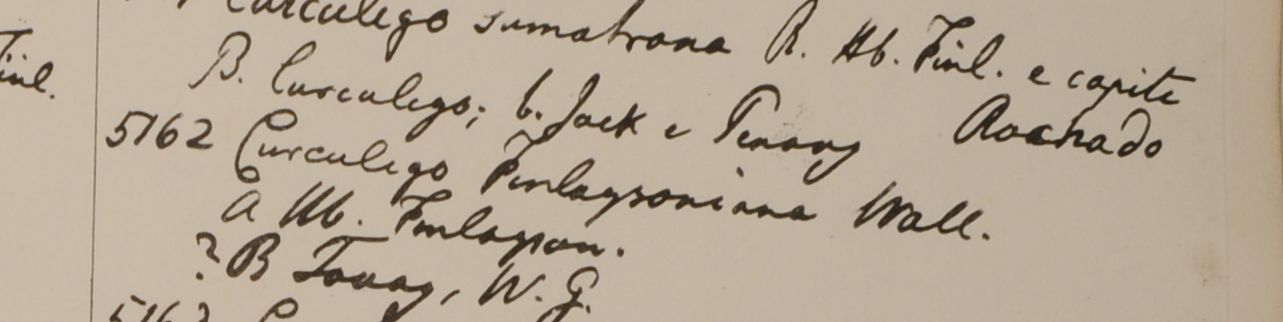 inl.
Curculigo sumatrana R. Hb. Finl. e capite
Roxhado
B. Curculigo; b. Jack e Penang
5162 Curculigo Finlaysoniana Wall.
A Hb. Finlayson.
? B Tavoy, W. G.